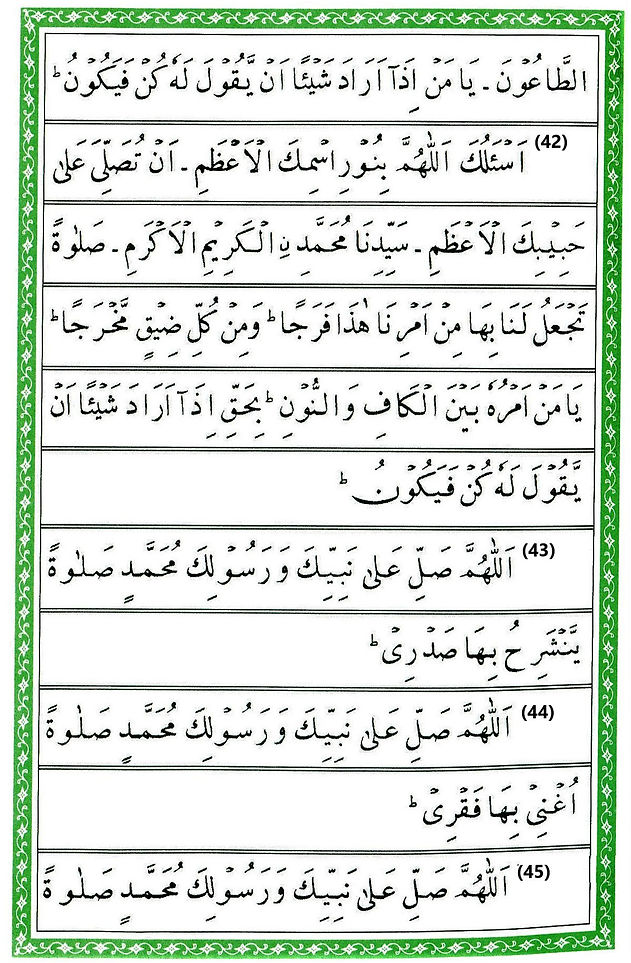 الطَّاعُوْنَ ـ يَا مَنْ اِذَآ اَرَادَ شَيْئًا اَنْ يَّقُوْلَ لَهٗ كُنْ فَيَكُوْنُ ؕ
(42) اَسْئَلُكَ اَللّٰهُمَّ بِنُوْرِ اسْمِكَ الْاَعْظَمِ ـ اَنْ تُصَلِّىَ عَلٰى
حَبِيْبِكَ الْاَعْظَمِ ـ سَيِّدِنَا مُحَمَّدِ نِ الْكَرِيْمِ الْاَكْرَمِ ـ صَلٰوةً
تَجْعَلُ لَنَا بِهَا مِنْ اَمْرِنَا هٰذَا فَرَجًا ؕ وَمِنْ كُلِّ ضِيْقٍ مَّخْرَجًا ؕ
يَا مَنْ اَمْرُهٗ بَيْنَ الْكَافِ وَالنُّوْنِ ؕ بِحَقِّ اِذَآ اَرَادَ شَيْئًا اَنْ
يَّقُوْلَ لَهٗ كُنْ فَيَكُوْنُ ؕ
(43) اَللّٰهُمَّ صَلِّ عَلٰى نَبِيِّكَ وَرَسُوْلِكَ مُحَمَّدٍ صَلٰوةً
يَّنْشَرِحُ بِهَا صَدْرِىْ ؕ
(44) اَللّٰهُمَّ صَلِّ عَلٰى نَبِيِّكَ وَرَسُوْلِكَ مُحَمَّدٍ صَلٰوةً
اُغْنِىْ بِهَا فَقْرِىْ ؕ
(45) اَللّٰهُمَّ صَلِّ عَلٰى نَبِيِّكَ وَرَسُوْلِكَ مُحَمَّدٍ صَلٰوةً